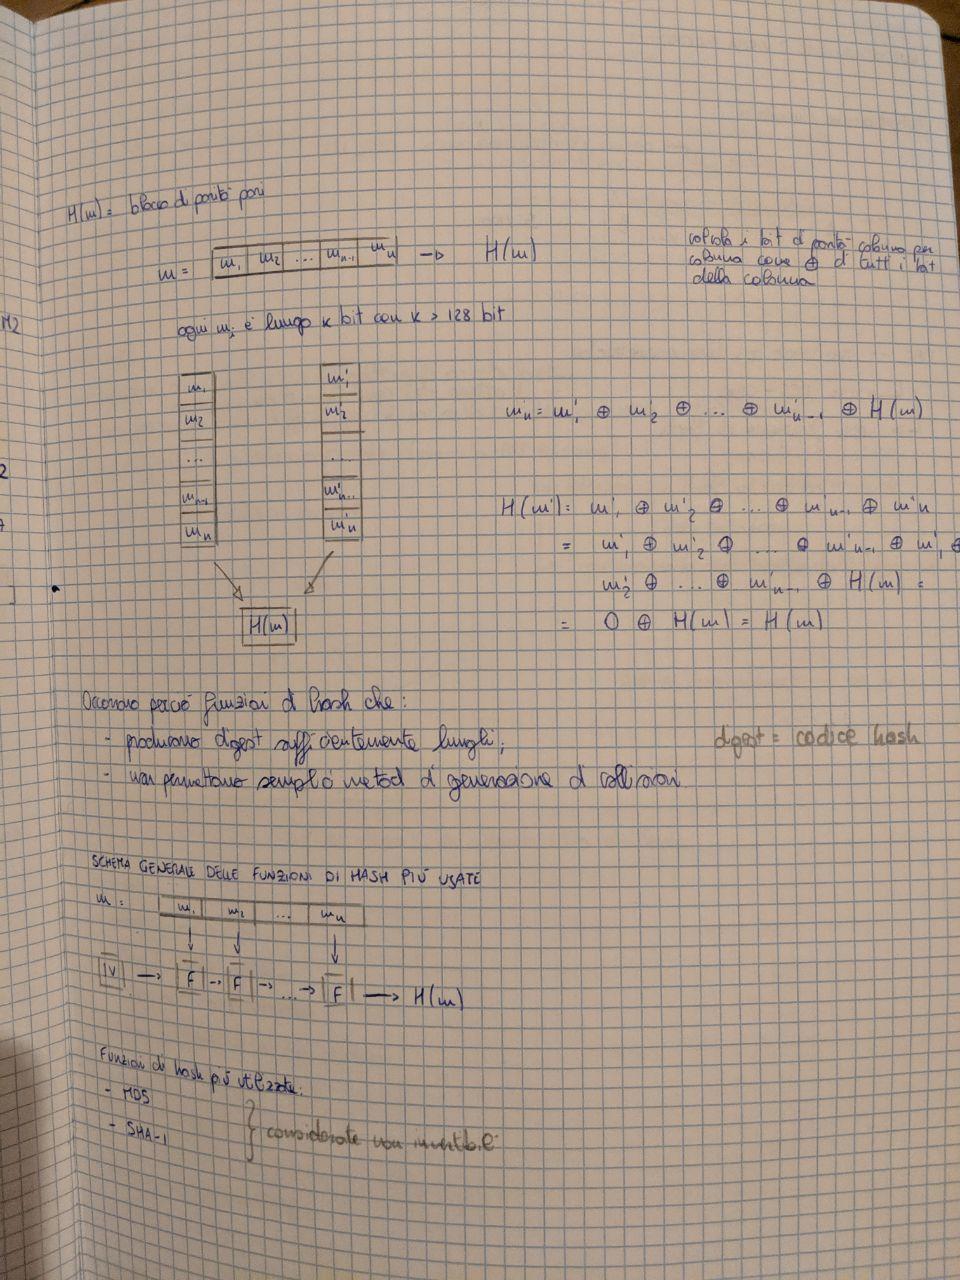 H(m) = blocco di parità pari
m = m₁ m₂ ... mₙ₋₁ mₙ → H(m)
calcola i bit di parità colonna per
colonna come ⊕ di tutti i bit
della colonna
ogni mᵢ è lungo k bit con k > 128 bit
m₁ m'₁
m₂ m'₂
... ...
mₙ₋₁ m'ₙ₋₁
mₙ m'ₙ
H(m)
mₙ = m'₁ ⊕ m'₂ ⊕ ... ⊕ m'ₙ₋₁ ⊕ H(m)
H(m') = m'₁ ⊕ m'₂ ⊕ ... ⊕ m'ₙ₋₁ ⊕ m'ₙ
= m'₁ ⊕ m'₂ ⊕ ... ⊕ m'ₙ₋₁ ⊕ m'₁ ⊕
m'₂ ⊕ ... ⊕ m'ₙ₋₁ ⊕ H(m) =
= 0 ⊕ H(m) = H(m)
Occorrono perciò funzioni di hash che:
- producano digest sufficientemente lunghi;
digest = codice hash
- non permettano semplici metodi di generazione di collisioni.
SCHEMA GENERALE DELLE FUNZIONI DI HASH PIÙ USATE
m = m₁ m₂ ... mₙ
IV → F → F → ... → F → H(m)
Funzioni di hash più utilizzate:
- MD5
- SHA-1
} considerate non invertibili